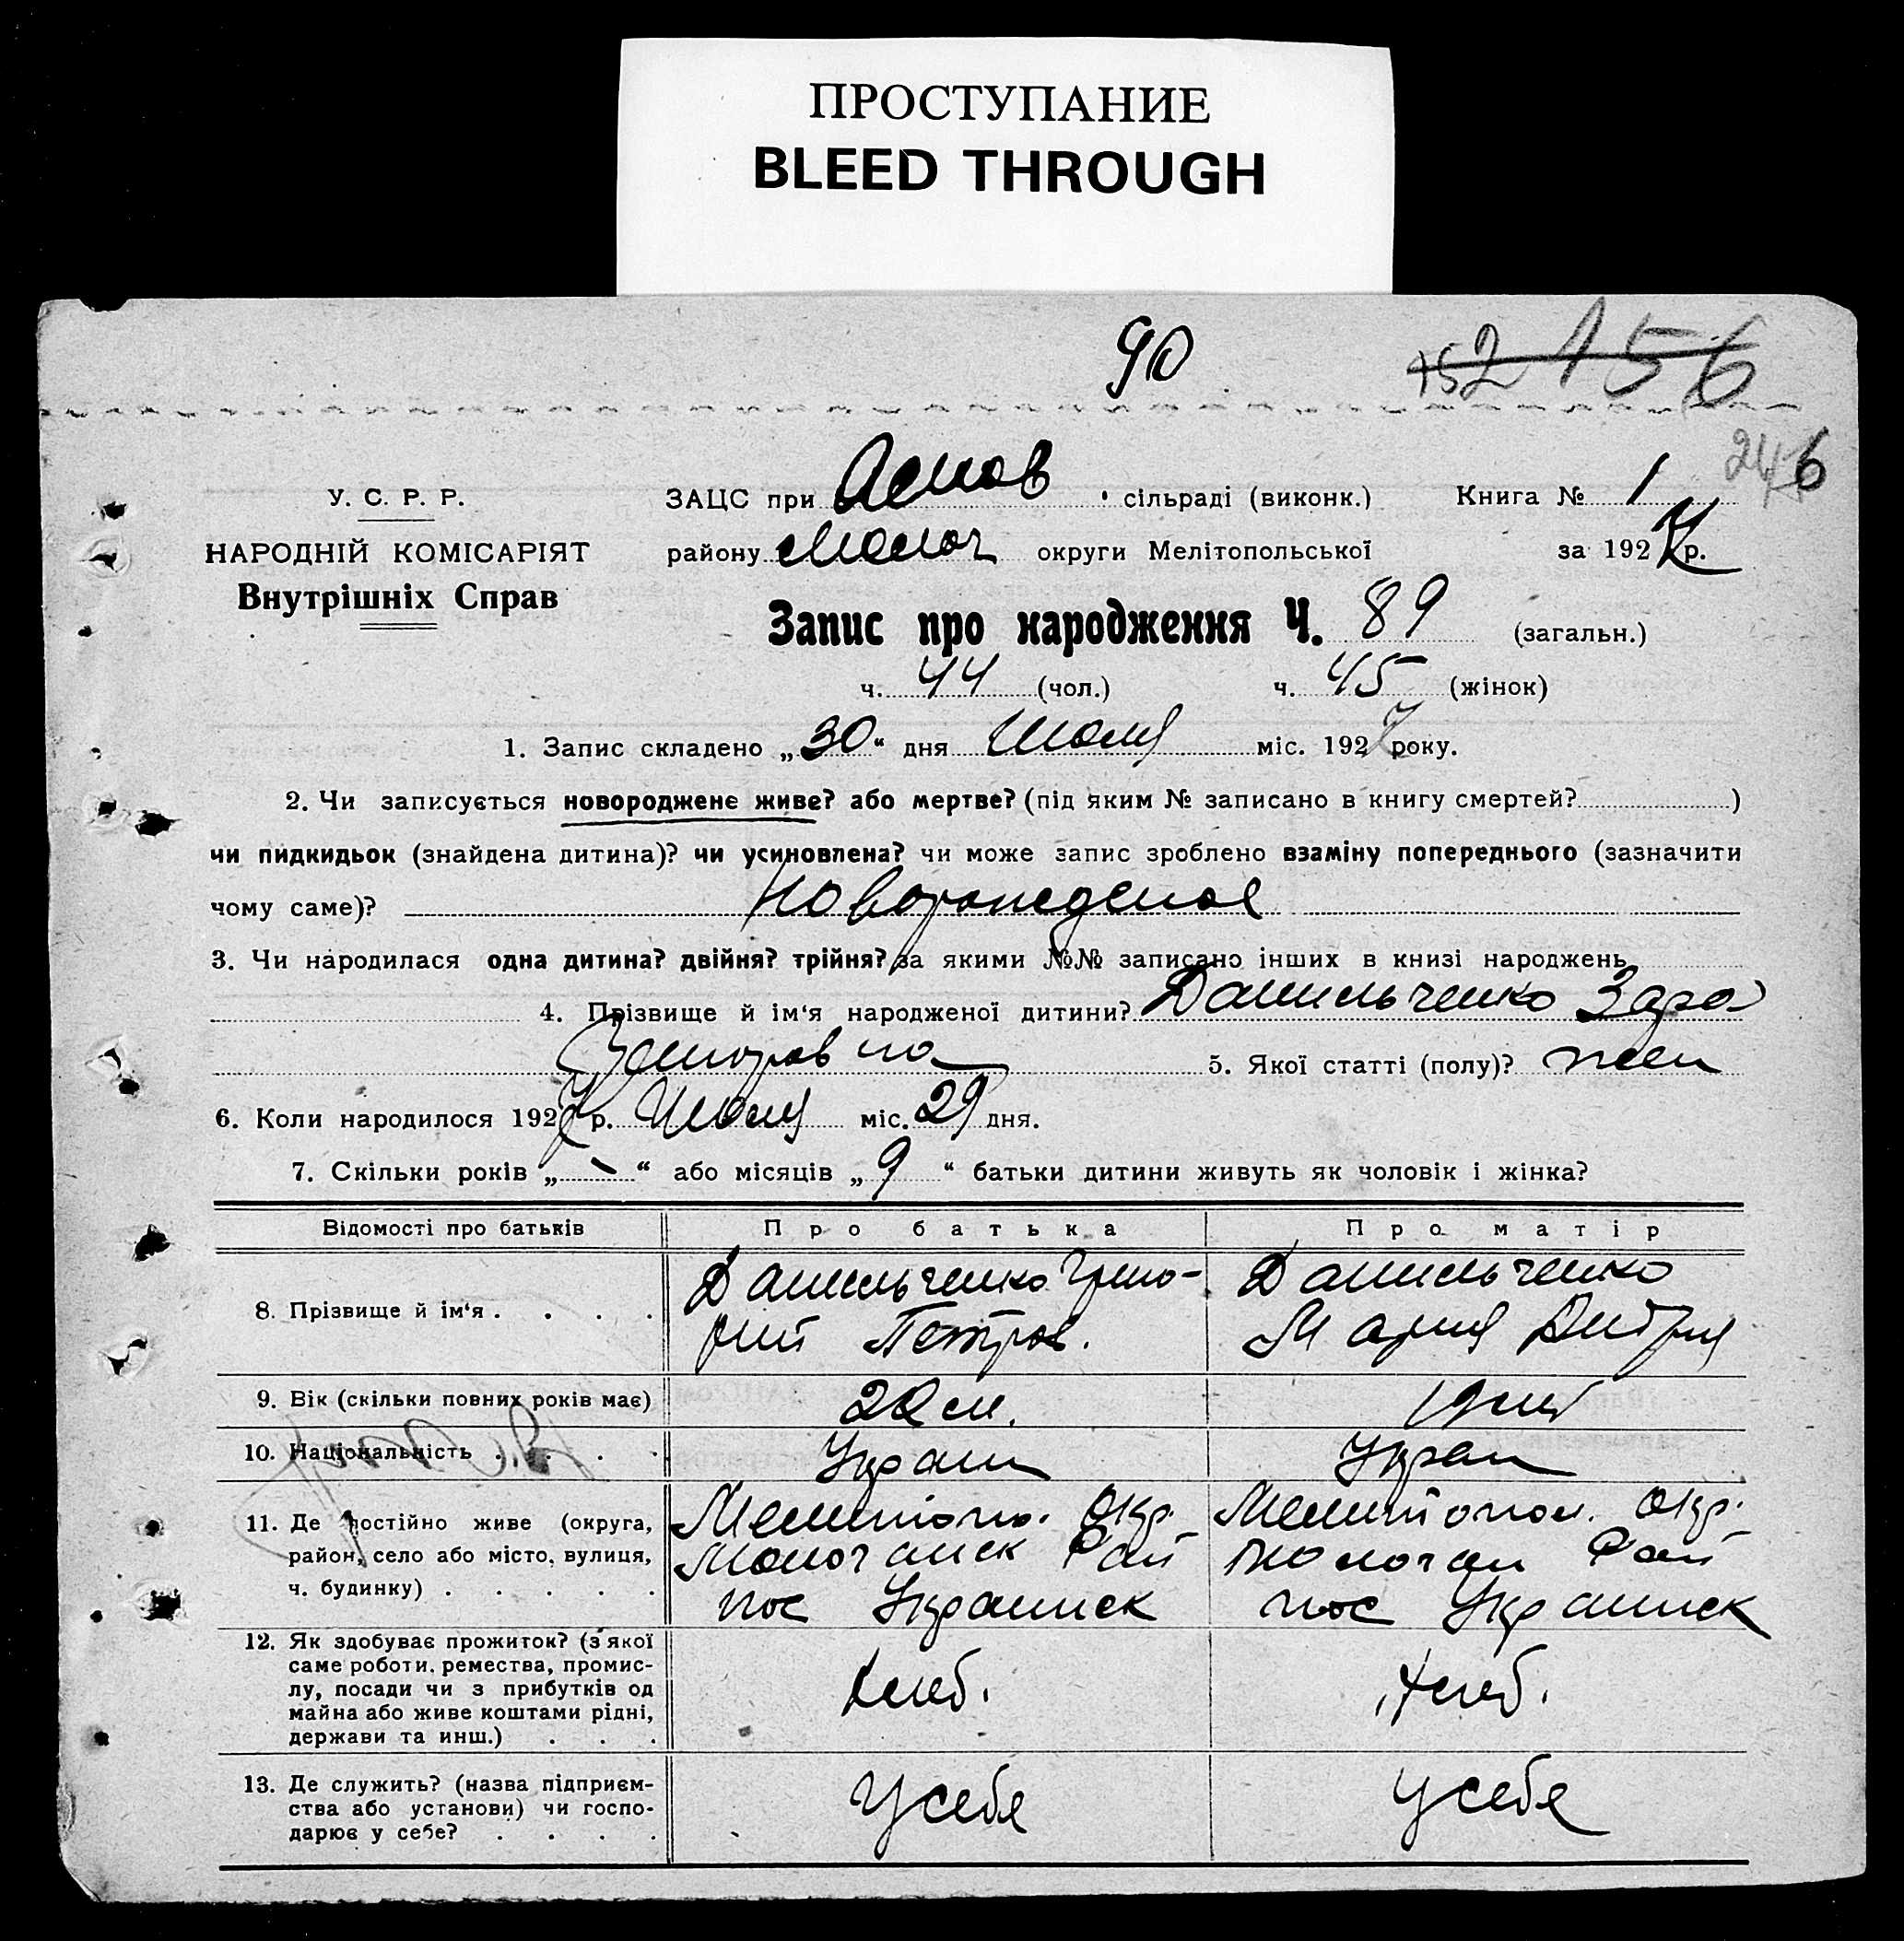 ПРОСТУПАНИЕ
BLEED THROUGH
90
152 156
246
У. С. Р. Р.
НАРОДНІЙ КОМІСАРІЯТ
Внутрішніх Справ
ЗАЦС при сільраді (виконк.) Книга № 1
району Молоч округи Мелітопольської за 1927 р.
Запис про народження Ч. 89 (загальн.)
ч. 44 (чол.) ч. 45 (жінок)
1. Запис складено „30“ дня Июля міс. 1927 року.
2. Чи записується новороджене живе? або мертве? (під яким № записано в книгу смертей? )
чи пидкидьок (знайдена дитина)? чи усиновлена? чи може запис зроблено взаміну попереднього (зазначити
чому саме)? Новорожденое
3. Чи народилася одна дитина? двійня? трійня? за якими №№ записано інших в книзі народжень
4. Прізвище й ім‘я народженої дитини? Данильченко
5. Якої статті (полу)? жен
6. Коли народилося 1927 р. Июля міс. 29 дня.
7. Скільки років „-“ або місяців „9“ батьки дитини живуть як чоловік і жінка?
Відомості про батьків Про батька Про матір
8. Прізвище й ім‘я . . . . Данильченко Григо-
рий Петров. Данильченко
Мария Дмитрия
9. Вік (скільки повних років має) 20 л. 19 лет
10. Національність . . . . Украин Украин
11. Де постійно живе (округа,
район, село або місто, вулиця,
ч. будинку) . . . . .
Мелитопо. Окр.
Молочанск Рай
пос Украинск
Мелитопол. Окр.
Молочан Рай
пос Украинск
12. Як здобуває прожиток? (з якої
саме роботи, ремества, промис-
лу, посади чи з прибутків од
майна або живе коштами рідні,
держави та инш.) . . .
Хлеб.
Хлеб.
13. Де служить? (назва підприєм-
ства або установи) чи госпо-
дарює у себе? . . . .
У себя
У себя